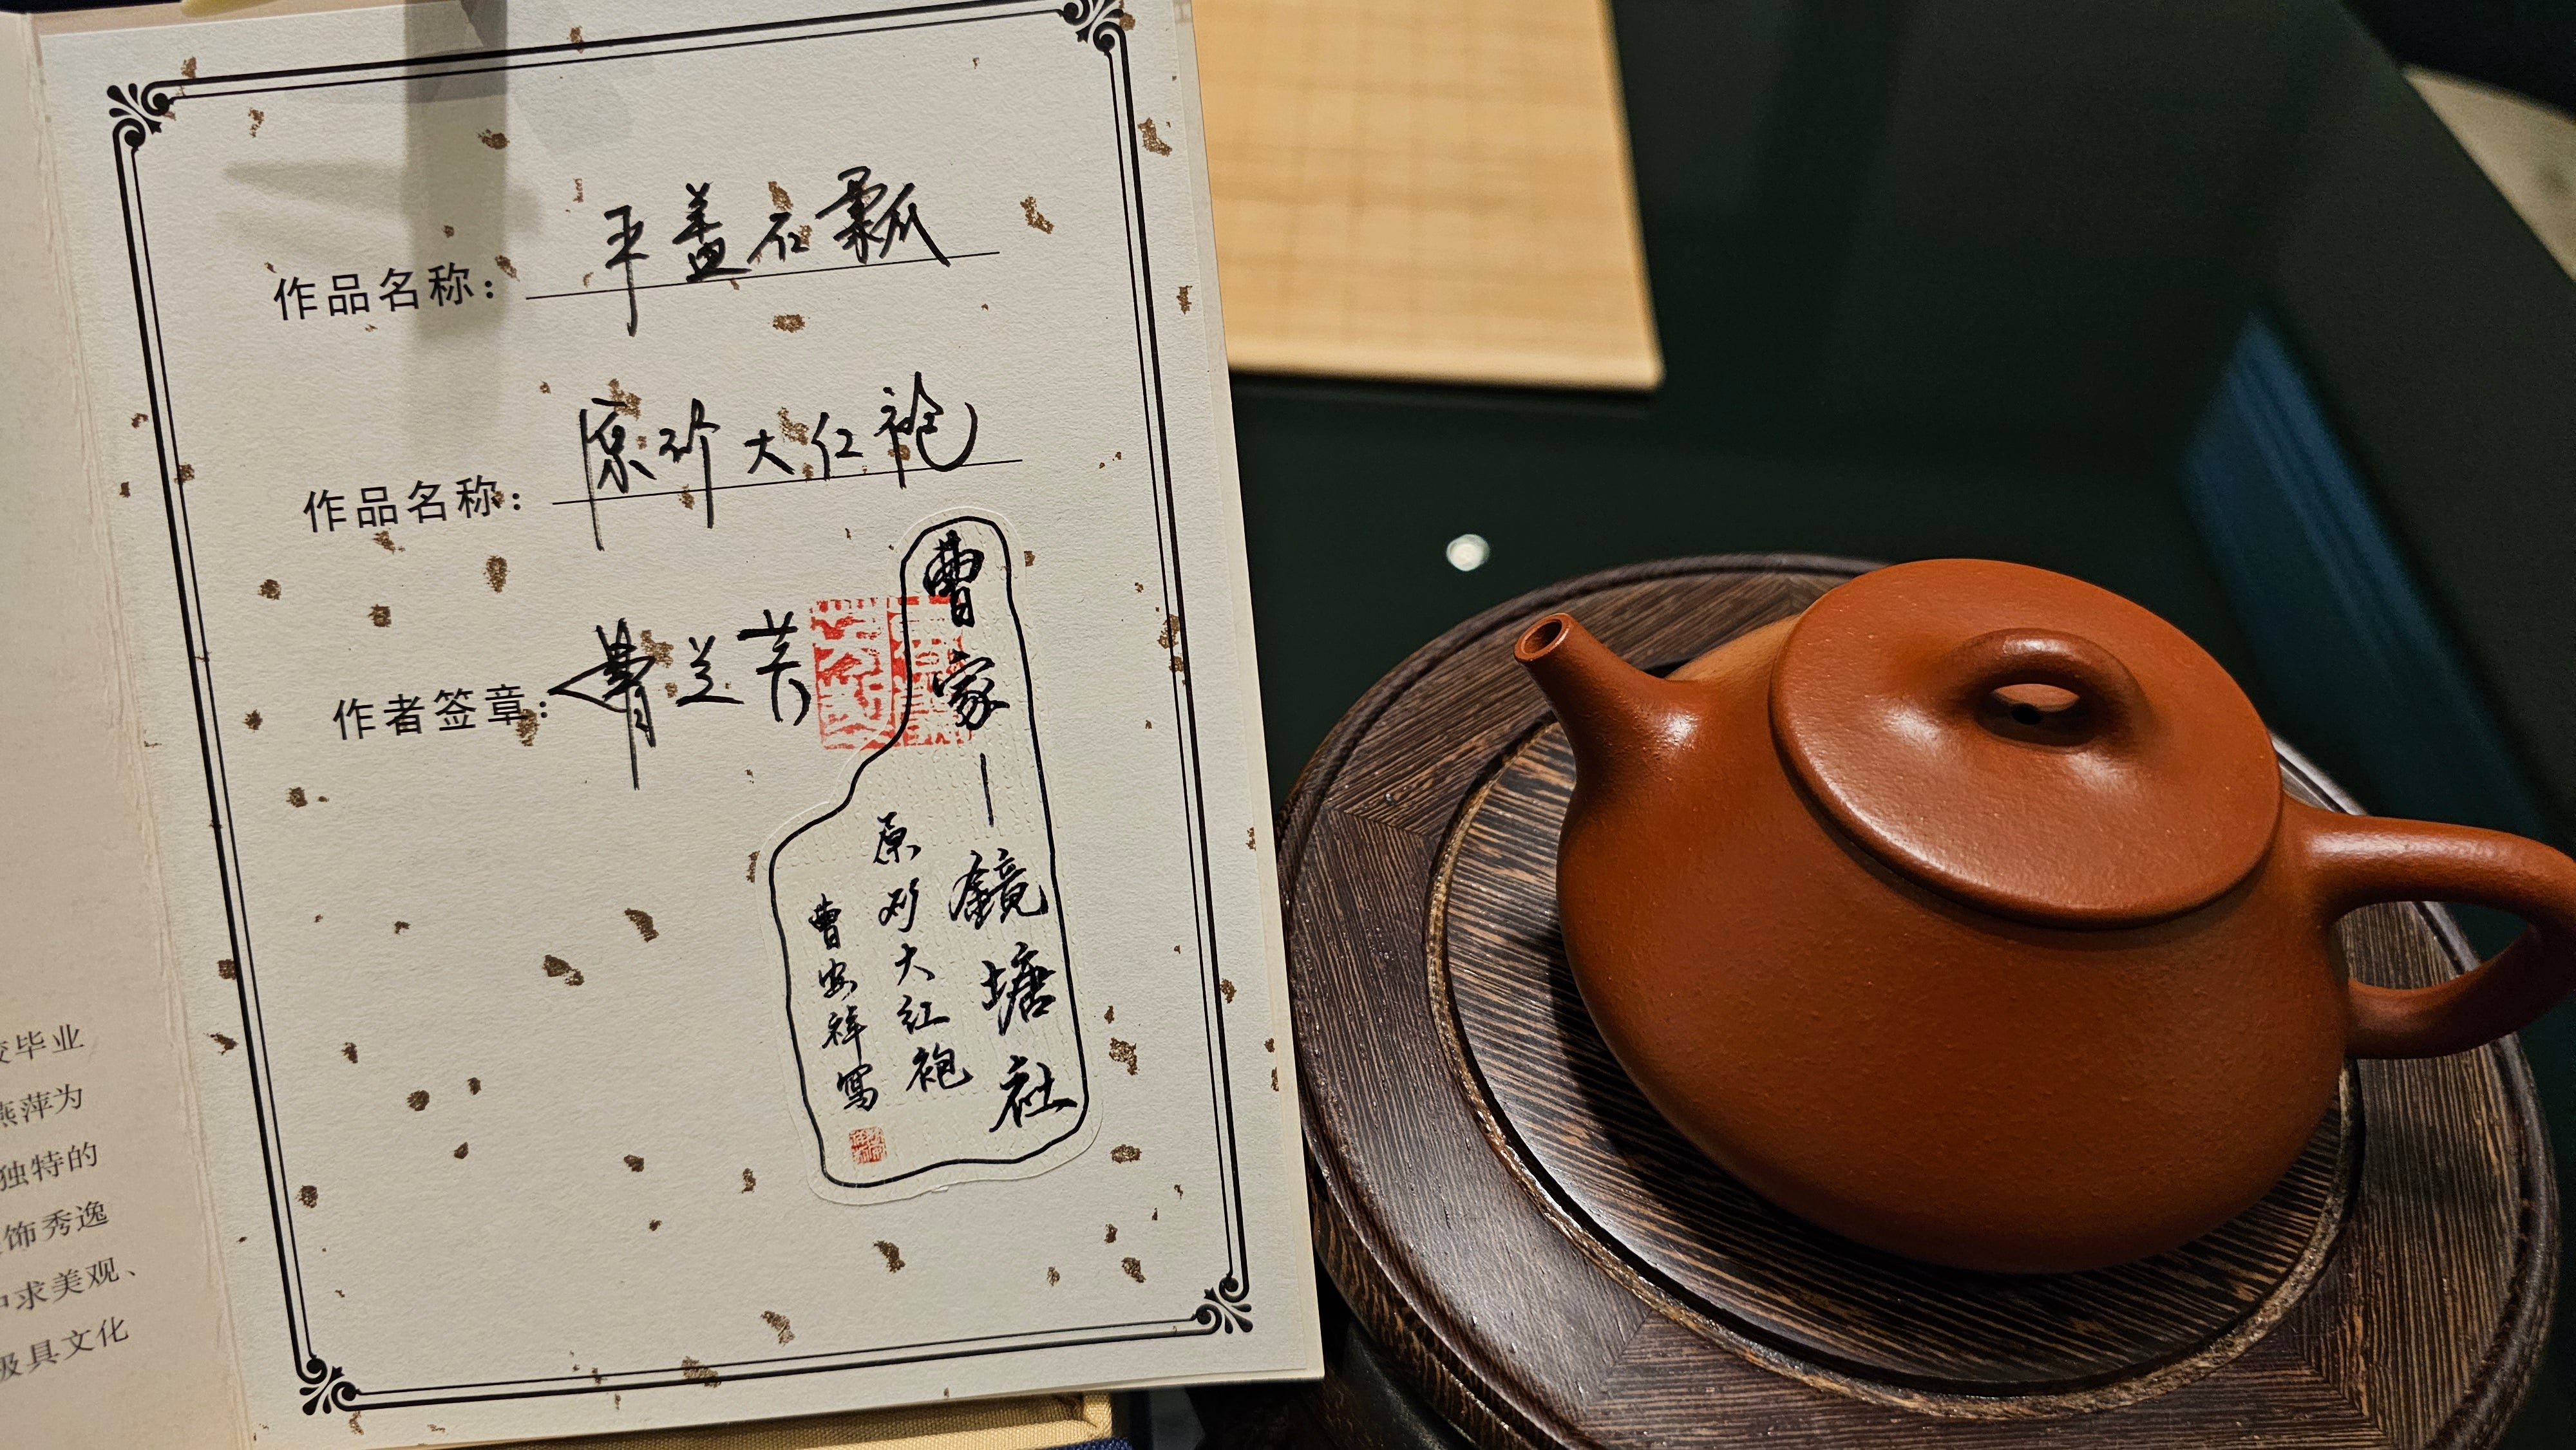 作品名称：平盖石瓢
作品名称：原矿大红袍
作者签章：曹兰芳
曹家—鏡塘社
原矿大红袍
曹安祥寫
毕业
燕萍为
独特的
饰秀逸
中求美观、
极具文化